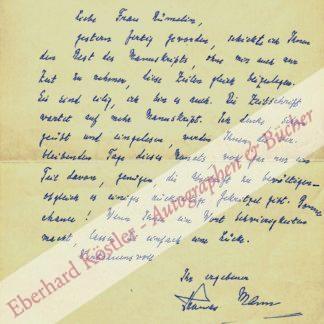 Liebe Frau Rümelin,
gestern fertig geworden, schickte ich Ihnen
den Rest des Manuskripts, ohne mir auch nur
Zeit zu nehmen, diese Zeilen gleich beizulegen.
Sie sind eilig, ich bin es auch. Die Zeitschrift
wartet auf mehr Manuskript. Ich denke,
geübt und eingelesen, werden Ihnen die
bleibenden Tage dieses Monats
Teil davon, genügen, die zu bewältigen,
obgleich es einiges Gekritzel gibt. Bonne
chance! Wenn Ihnen ein Wort Schwierigkeiten
macht, lassen Sie einfach eine Lücke.
Ihr ergebener
Thomas Mann
Eberhard Köstler - Autographen & Bücher